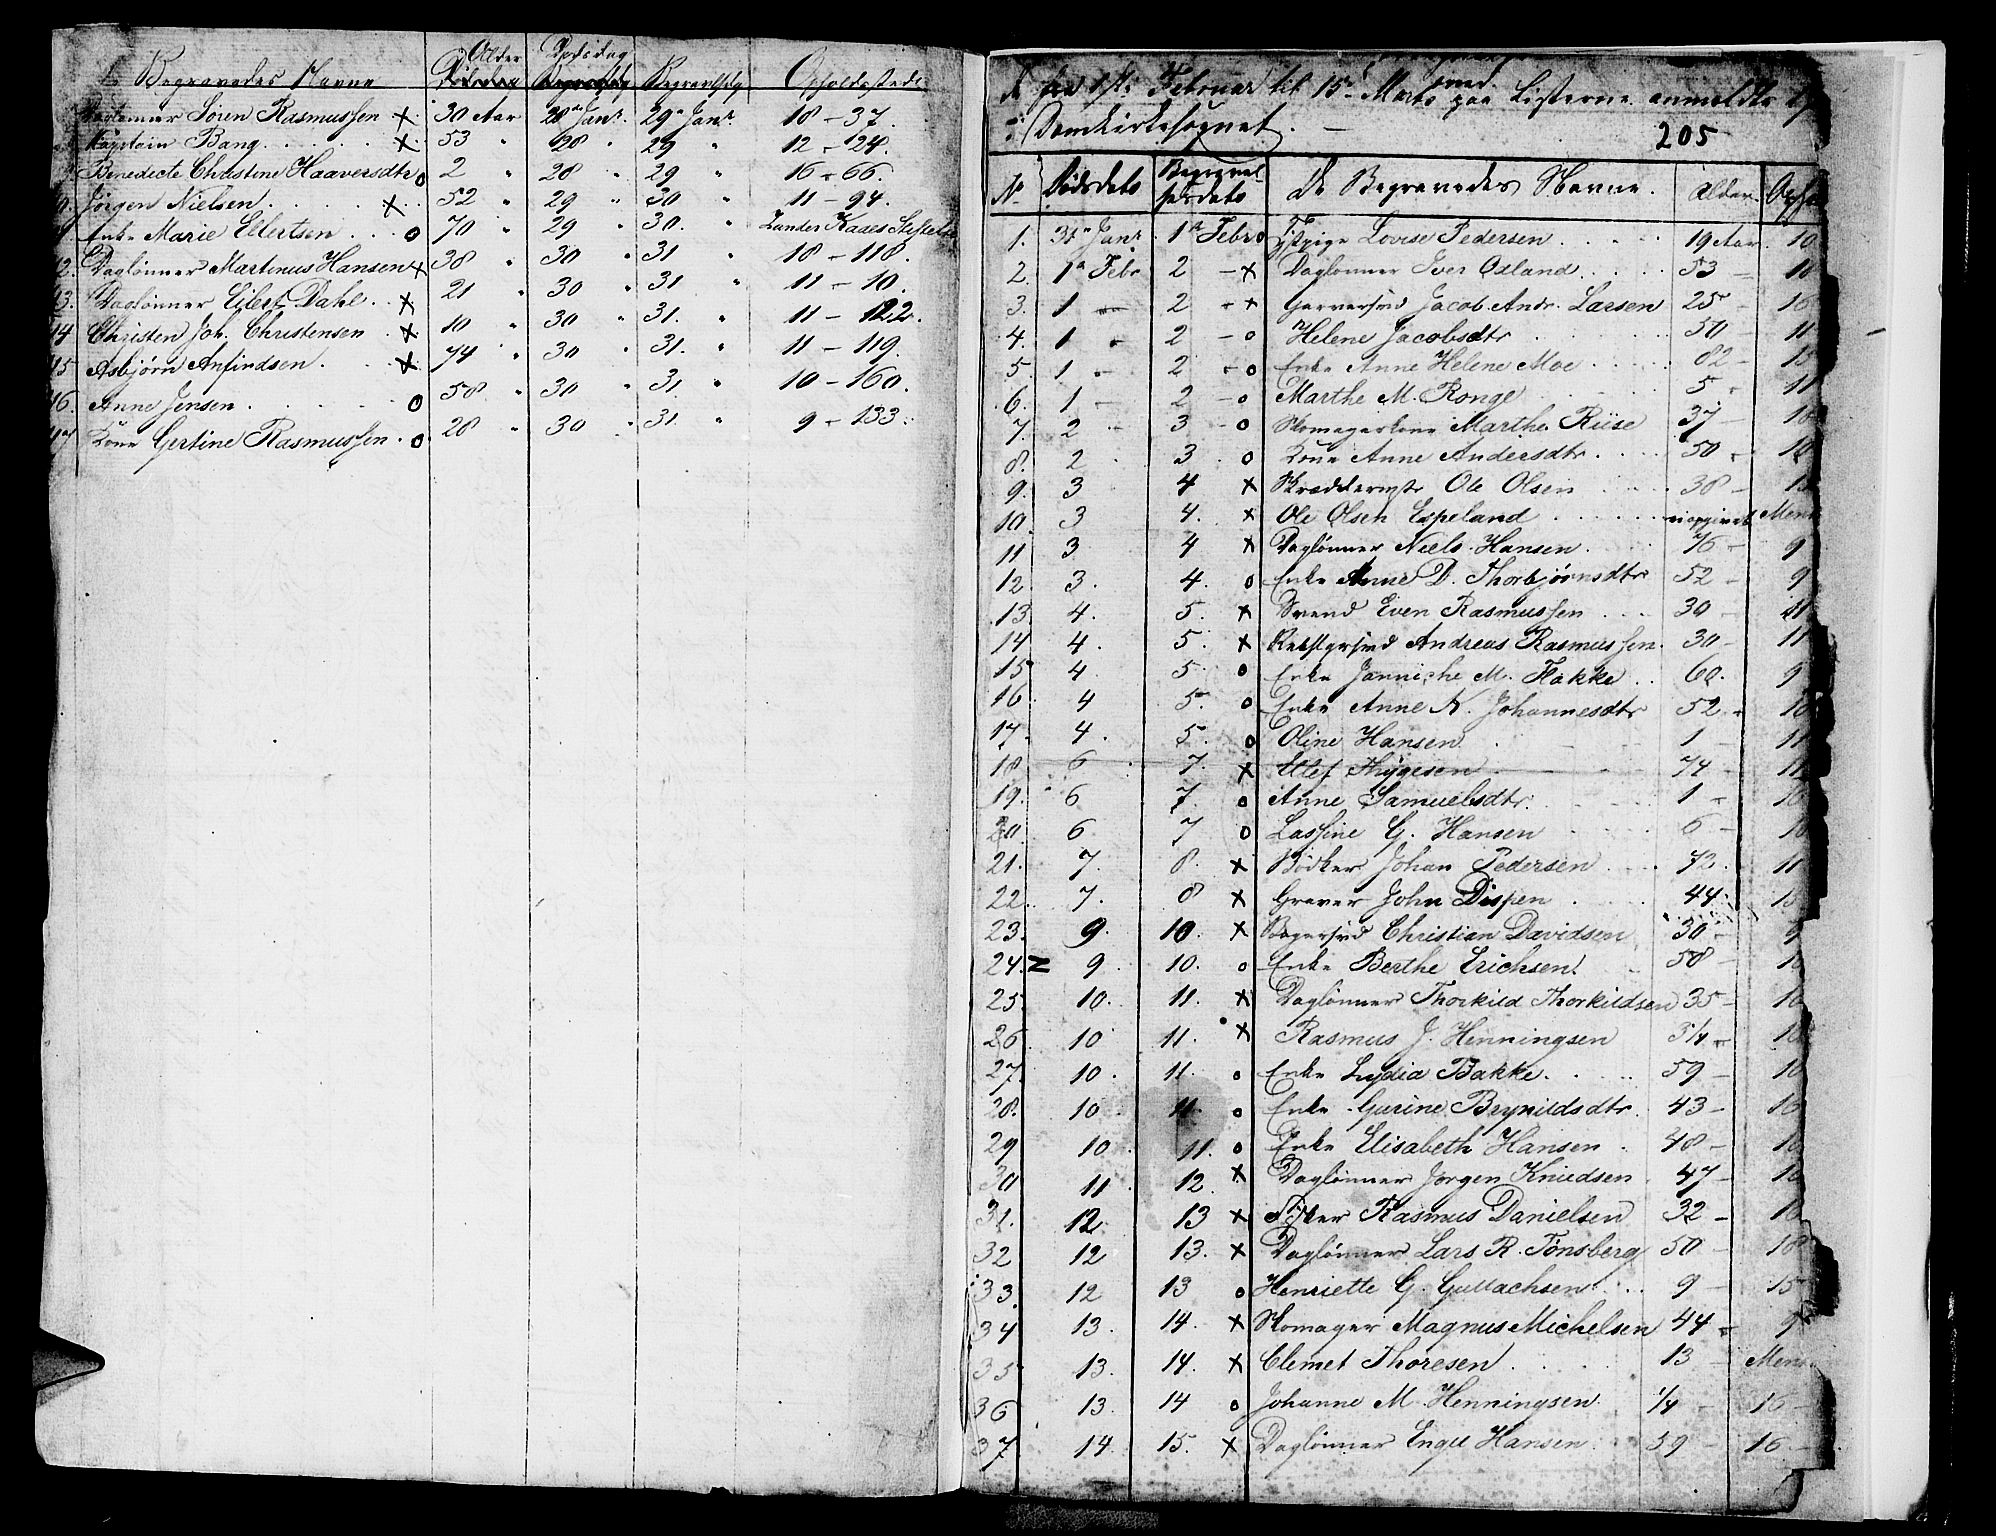 Begravedes Navne Alder Dødsdag Begravelsdg Opholdssted
Daglønner Søren Rasmussen × 30 Aar 28 Janr. 29 Janr. 18 - 37.
Kaptain Bang × 53 " 28 " 29 " 12 - 124.
Benedicte Christine Haaversdtr o 2 " 28 29 " 16 - 66.
Jørgen Nielsen × 52 " 29 " 30 " 11 - 94.
Enke Marie Ellertsen o 70 " 29 " 30. " Zander Kaaes Stiftelse
42. Daglønner Martinus Hansen × 38 " 30 " 31 " 18 - 118.
43. Daglønner Eilert Dahl × 21 " 30 " 31 " 11 - 10.
44 Christen Joh. Christensen × 10 " 30 " 31. " 11 - 122.
45 Asbjørn Anfindsen × 74 " 30 " 31. " 11 - 119.
46. Anne Jensen o 58 " 30 " 31. " 10 - 160.
47 Kone Gertine Rasmussen o 28 " 30 " 31. " 9 - 133.
fra 1ste Februar til 15de Marts paa Listerne anmeldte
i Domkirkesognet. 205
No. Dødsdato Begravelsesdato De Begravedes Navne. Alder.
1. 31 Janr 1 Febr o Pige Lovise Pedersen 19 Aar. 10
2. 1 Febr 2 - × Daglønner Iver Odland 53 - 10
3. 1 2 - × Garversvd Jacob Andr. Larsen 25 - 16
4. 1 2 - o Helene Jacobsdtr 50 11
5. 1 2 - o Enke Anne Helene Moe 82 -
6. 1 - 2 - o Marthe M. Ronge 5 - 11
7. 2 3 - o Skomagerkone Marthe Riise 37 - 18
8. 2 3 o Kone Anne Andersdtr. 50 - 10
9. 3 4 × Skræddermstr Ole Olsen 38 -
10. 3 4. × Ole Olsen Espeland uopgivet
11 3 4 × Daglønner Niels Hansen 76 - 9
12. 3. 4. o Enke Anne D. Thorbjørnsdtr 52 - 9
13 4. 5. × Svend Even Rasmussen 30 - 11
14 4. 5. × Andreas Rasmussen. 30 - 11
15 4. 5 o Enke Jannicke M. Flakke 60. 9
16 4 5. o Enke Anne N. Johannesdtr 52 - 10
17. 4. 5. o Oline Hansen 1 - 11
18. 6 7. × Ellef Thygesen 74 - 11
19. 6 7. o Anne Samuelsdtr. 1 - 10
20 6 7 o Lassine G. Hansen 6 - 10
21. 7. 8. × Bødker Johan Pedersen 72. 11
22. 7. 8 × Graver John Dispen 44. 15
23. 9. 10. × Bagersvd Christian Davidsen 30 - 9
24. 9. 10. o Enke Berthe Erichsen. 58 - 10
25. 10. 11. × Daglønner Thorkild Thorkildsen 35 - 10
26 10 11. × Rasmus J. Henningsen 3/4 - 10
27. 10. 11. o Enke Lydia Bakke. 59 - 10
28. 10 11. o Enke Gurine Brynildsdtr. 43 - 10
29 10 11. o Enke Elisabeth Hansen 48 - 10
30 11. 12. × Daglønner Jørgen Knudsen 47 - 10
31. 12. 13 × Rasmus Danielsen 32 - 10
32 12 13. × Daglønner Lars R. Tønsberg 50 - 18
33. 12 13 o Henriette G. Gullachsen 9 - 15
34 13. 14. × Skomager Magnus Michelsen 44 - 9
35 13. 14. × Clemet Thoresen 13 -
36 13. 14 o Johanne M. Henningsen 1/4 - 16 -
37 14. 15. × Daglønner Engel Hansen 59 - 16 -